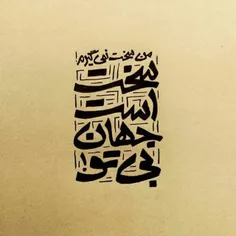 من سخت نمی‌گیرم
سخت
است
جهان
بی تو!